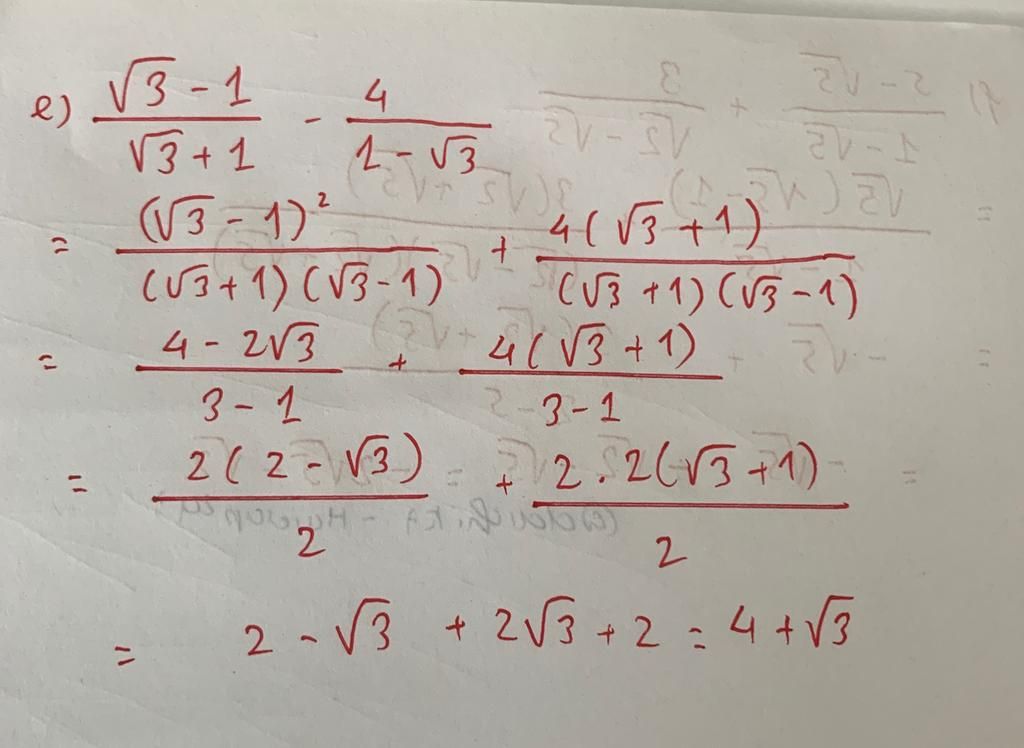 e) (√3 - 1)/(√3 + 1) - 4/(1 - √3)
= (√3 - 1)²/((√3 + 1)(√3 - 1)) + 4(√3 + 1)/((√3 + 1)(√3 - 1))
= (4 - 2√3)/(3 - 1) + 4(√3 + 1)/(3 - 1)
= 2(2 - √3)/2 + 2.2(√3 + 1)/2
= 2 - √3 + 2√3 + 2 = 4 + √3